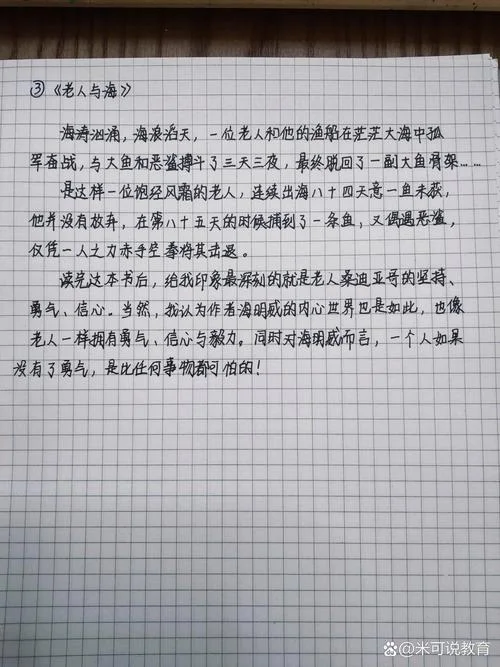 ③《老人与海》
海涛汹涌，海浪滔天，一位老人和他的渔船在茫茫大海中孤
军奋战，与大鱼和恶鲨搏斗了三天三夜，最终脱回了一副大鱼骨架……
是这样一位饱经风霜的老人，连续出海八十四天竟一鱼未获，
他并没有放弃，在第八十五天的时候捕到了一条鱼，又偶遇恶鲨，
仅凭一人之力赤手空拳将其击退。
读完这本书后，给我印象最深刻的就是老人桑迪亚哥的坚持、
勇气、信心。当然，我认为作者海明威的内心世界也是如此，也像
老人一样拥有勇气、信心与毅力。同时对海明威而言，一个人如果
没有了勇气，是比任何事物都可怕的！
@米可说教育